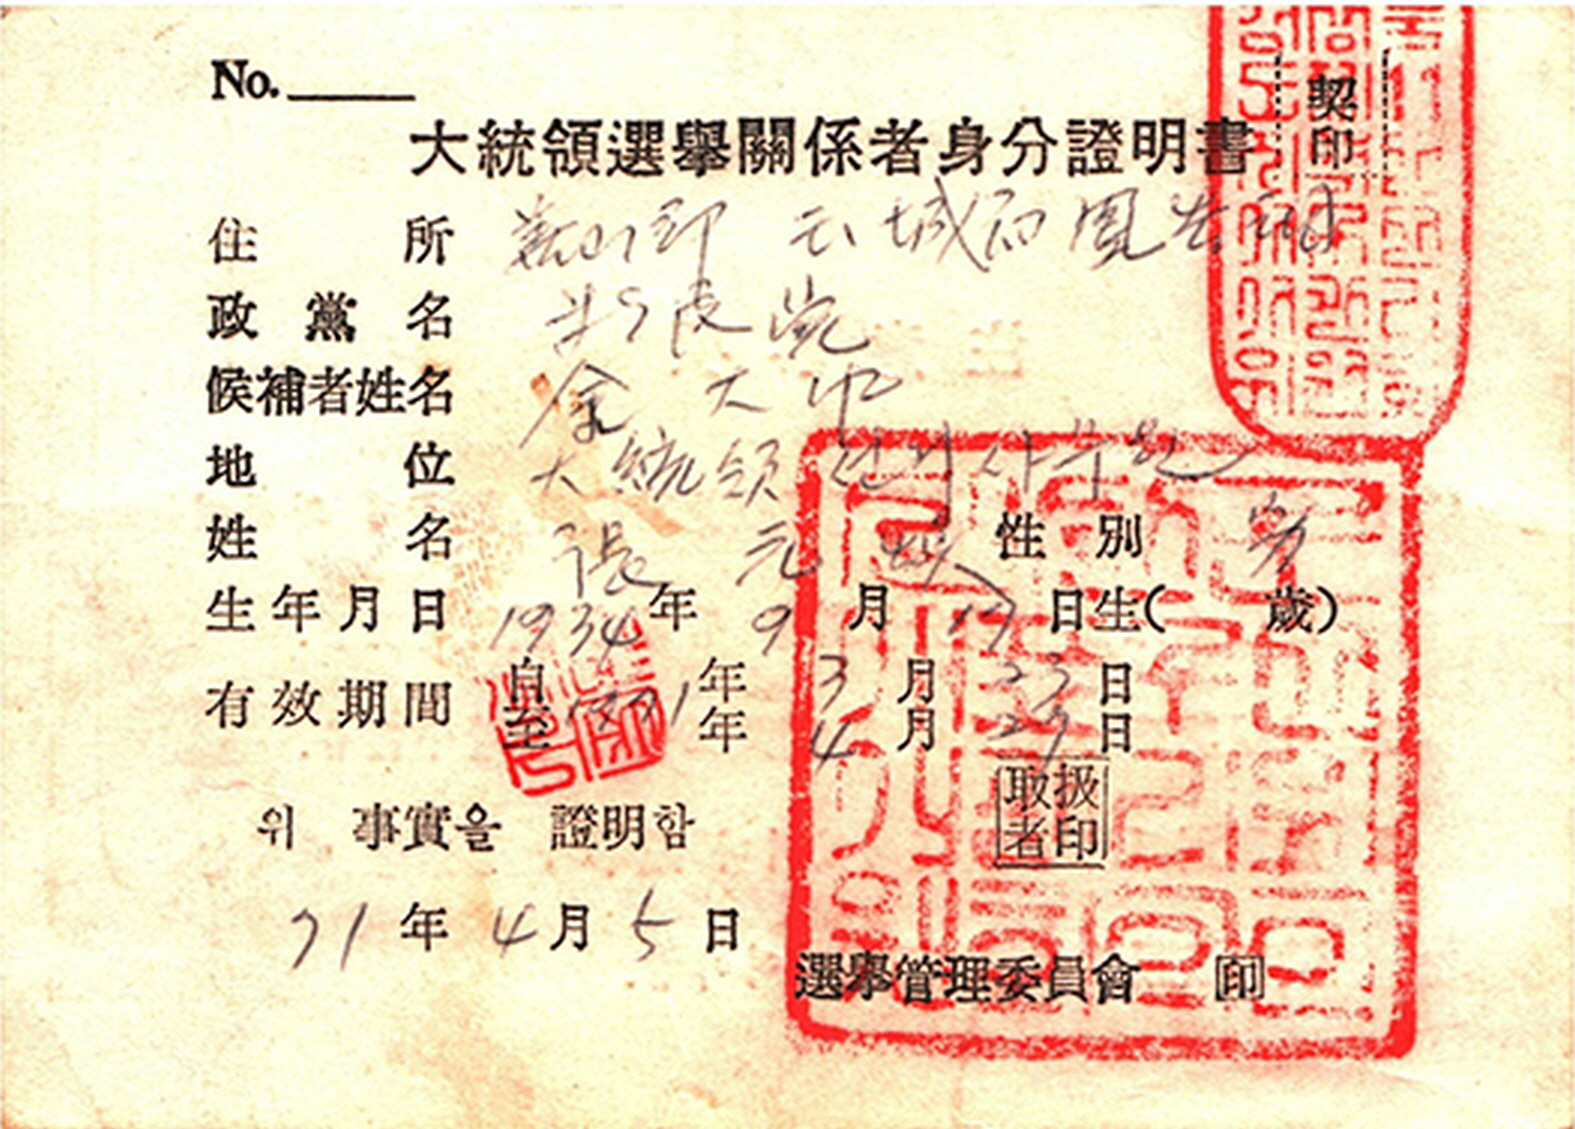 No.
契印
大統領選擧關係者身分證明書
住所 城面 鳳
政黨名
候補者姓名 金大中
地位 大統領 선거사무원
姓名 張元 性別 男
生年月日 1934年 9月 19日生( 歲)
有效期間 自 1971年 3月 23日
至 年 4月 27日
取扱者印
위 事實을 證明함
71年 4月 5日
選擧管理委員會 印